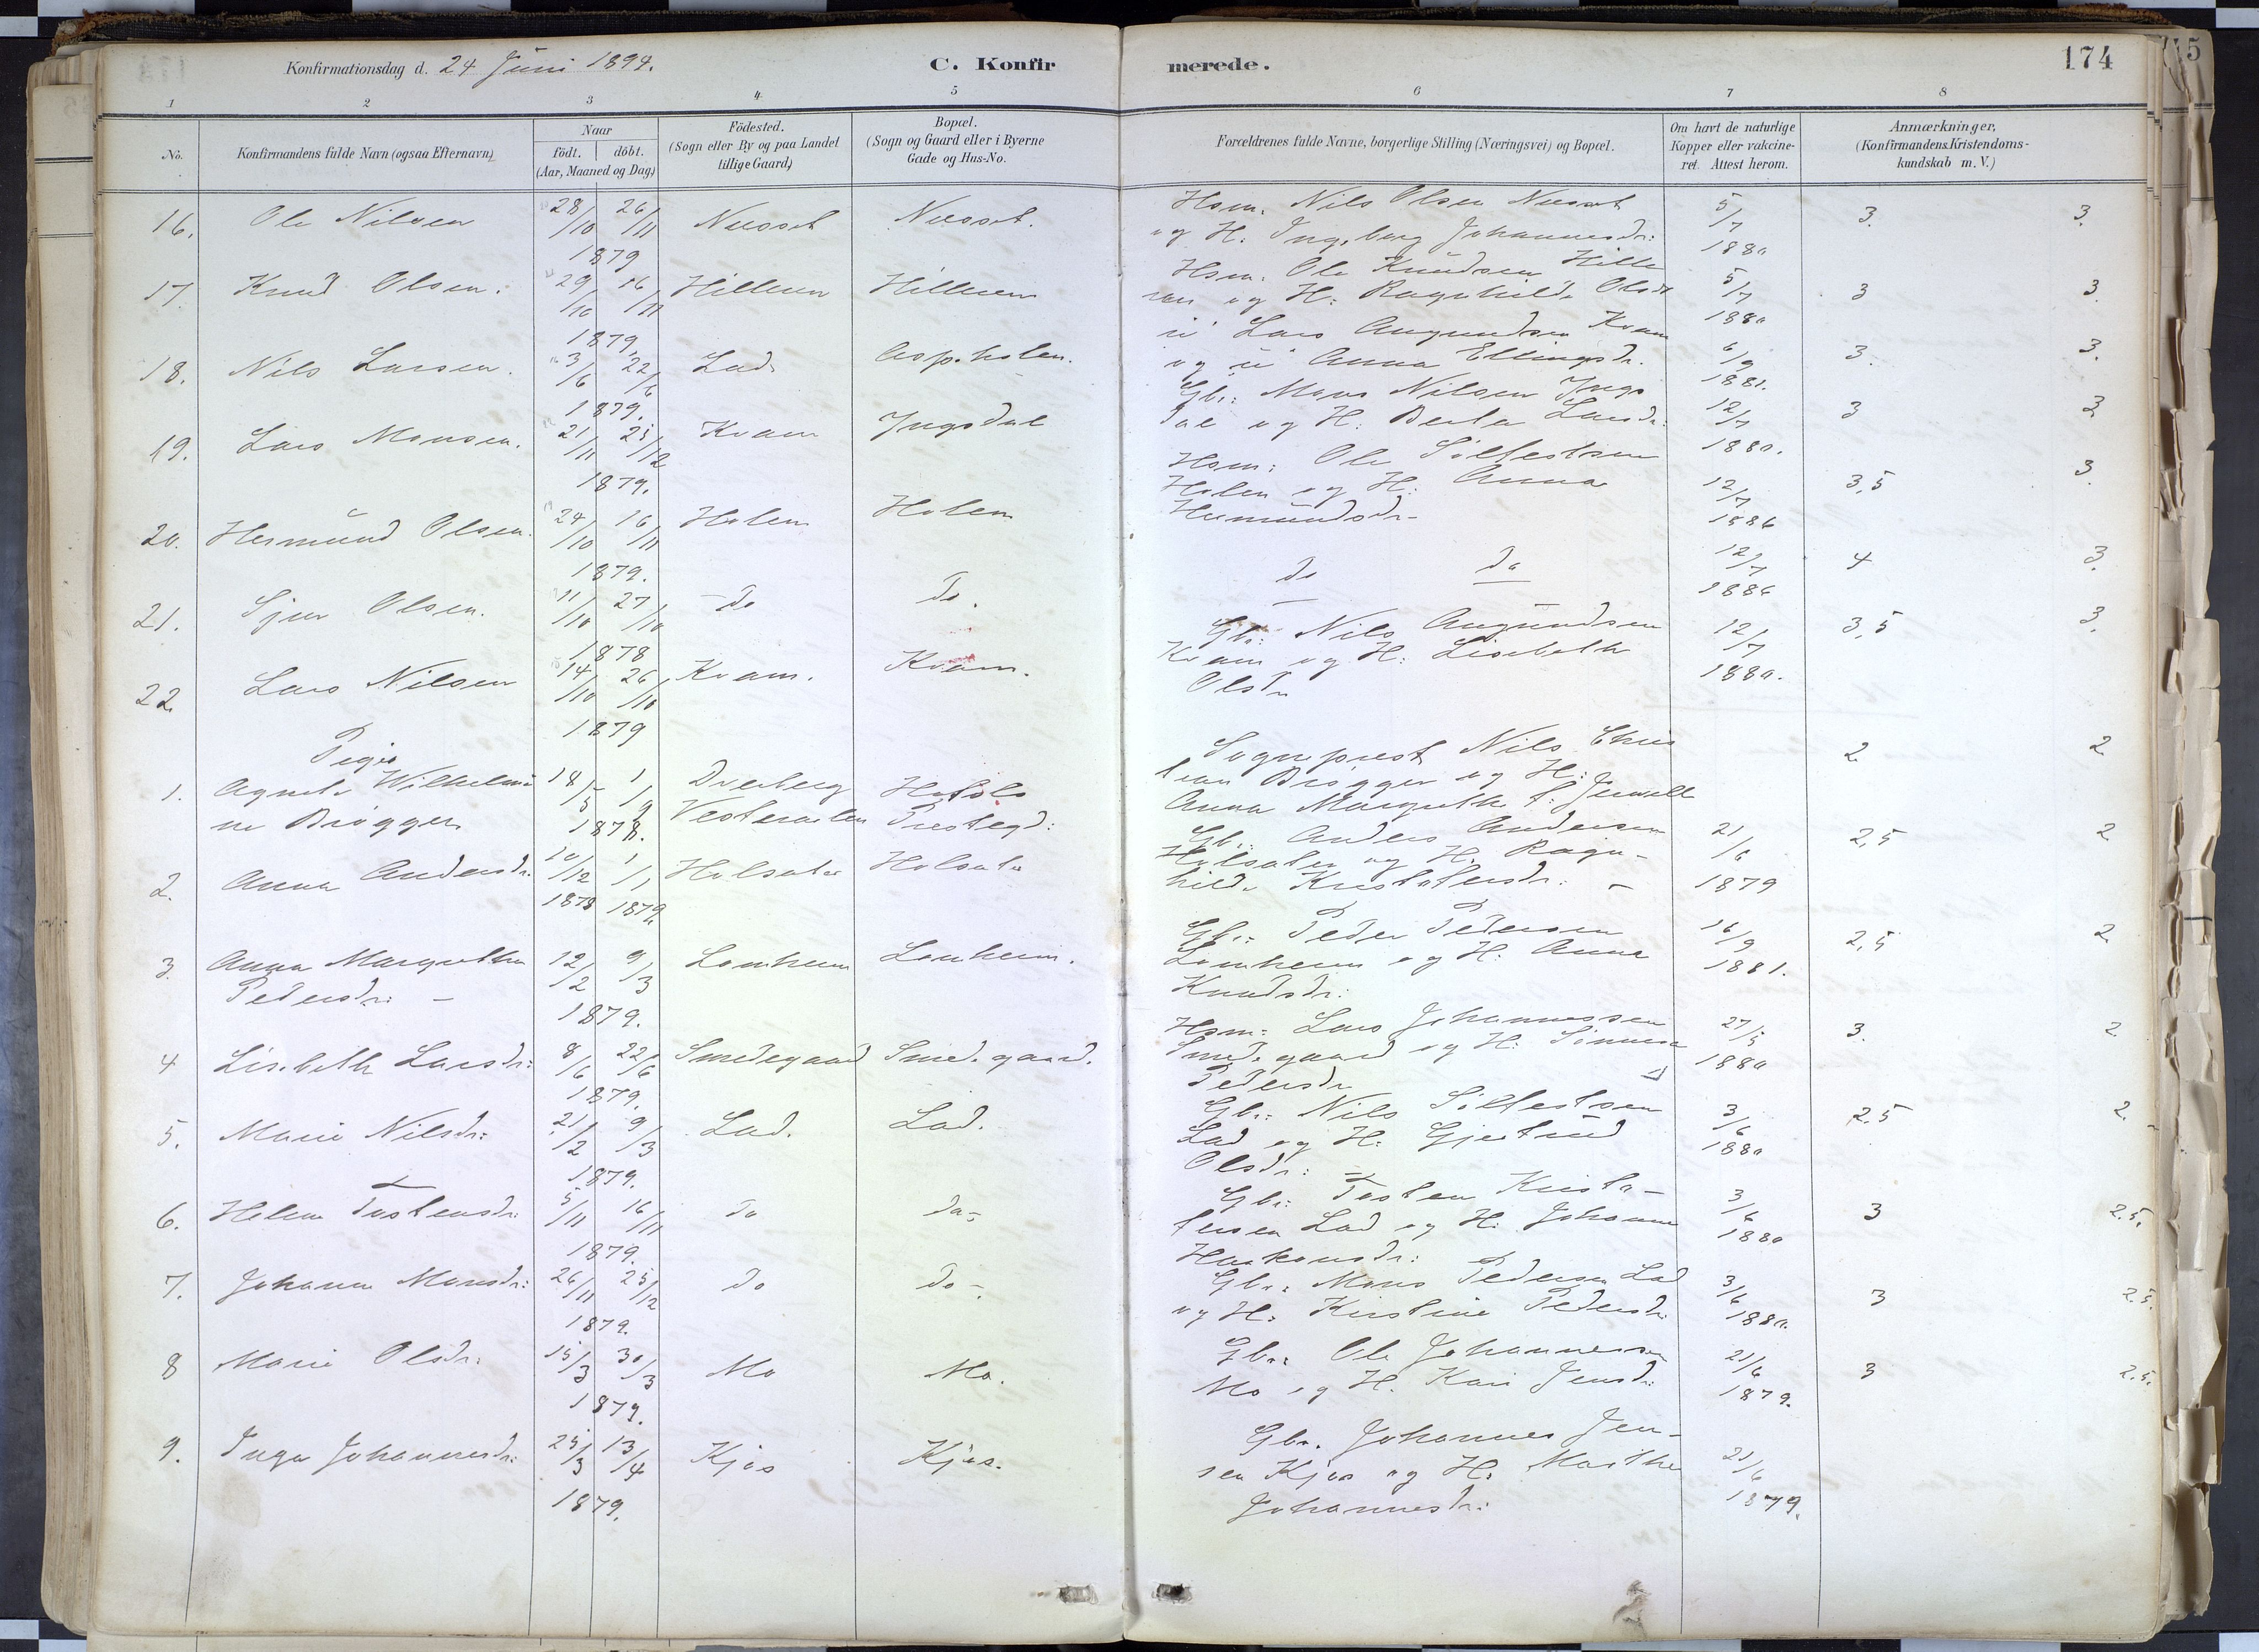 Konfirmationsdag d. 24 Juni 1894.
C. Konfirmerede.
174
1 2 3 4 5 6 7 8
No.
Konfirmandens fulde Navn (ogsaa Efternavn)
Naar
födt. döbt.
(Aar, Maaned og Dag)
Födested.
(Sogn eller By og paa Landet
tillige Gaard)
Bopæl.
(Sogn og Gaard eller i Byerne
Gade og Hus-No.
Forældrenes fulde Navne, borgerlige Stilling (Næringsvei) og Bopæl.
Om havt de naturlige
Kopper eller vakcine-
ret. Attest herom.
Anmærkninger,
(Konfirmandens Kristendoms-
kundskab m. V.)
16. Ole Nilsen 28/10 26/11 1879
Hsm. Nils Olsen
og H: Ingeborg Johannesdr:
5/7 1880 3. 3.
17. Knud Olsen. 29/10 16/11 1879. Hilleren Hilleren
Hsm: Ole Knudsen Hille
ren og H: Ragnhilde Olsdr
5/7 1880 3 3.
18. Nils Larsen. 3/6 22/6 1879. Lad Asp.holen.
u Lars Augundsen Kvam
og u Anna Ellingsdr.
6/9 1881. 3. 3.
19. Lars Monsen. 21/11 25/12 1879. Kvam Yngsdal
Gbr: Mons Nilsen Yngs
dal og H: Berta Larsdr:
12/7 1880. 3 3
20. Hermund Olsen. 24/10 16/11 1879. Holen Holen
Hsm: Ole Sølfestsen
Holen og H: Anna
Hermundsdr-
12/7 1886 3,5 3.
21. Sjur Olsen. 11/10 27/10 1878 do do.
do do
12/7 1886 4 3.
22. Lars Nilsen 14/10 26/10 1879 Kvam. Kvam.
Gbr: Nils Augundsen
Kvam og H: Lisebeth
Olsdr
12/7 1880. 3,5 3.
Piger
1. Agnete Wilhelmi
ne Brøgger 14/5 1/9 1878. Dverberg
Vesteraalen Hafslo
Prestegd:
Sogneprest Nils Chris
tian Brøgger og H:
Anna Margrethe f: Jervell
2 2
2. Anna Andersdr. 10/12 1878 1/1 1879. Holsæter Holsæter
Gbr: Anders Andersen
Holsæter og H: Ragn-
hilde Kristofersdr: -
21/6 1879 2,5 2
3. Anna Margrethe
Pedersdr: - 12/2 9/3 1879. Lomheim Lomheim.
Gbr: Peder Pedersen
Lomheim og H: Anna
Knudsdr:
16/9 1881. 2,5 2
4 Lisebeth Larsdr: 8/6 22/6 1879. Smedegaard Smedegaard.
Hsm: Lars Johannessen
Smedegaard og H: Sinneva
Pedersdr
27/5 1880 3. 2
5. Marie Nilsdr: 21/2 9/3 1879. Lad. Lad.
Gbr: Nils Sølfestsen
Lad og H: Gjertrud
Olsdr:
3/6 1880 2.5 2.
6. Helene Tostensdr: 5/11 16/11 1879. do do-
Gbr: Tosten Kristo-
fersen Lad og H: Johanne
Haakonsdr:
3/6 1880 3 2.5.
7. Johanne Monsdr: 26/11 25/12 1879. do do-
Gbr: Mons Pedersen Lad
og H: Kirstine Pedersdr.
3/6 1880. 3 2.5.
8 Marie Olsdr: 15/3 30/3 1879. Mo Mo.
Gbr: Ole Johannessen
Mo og H. Kari Jensdr:
21/6 1879. 3 2.5.
9. Inga Johannesdr: 25/3 13/4 1879. Kjøs Kjøs.
Gbr. Johannes Jen-
sen Kjøs og H: Marthe
Johannesdr:
21/6 1879.